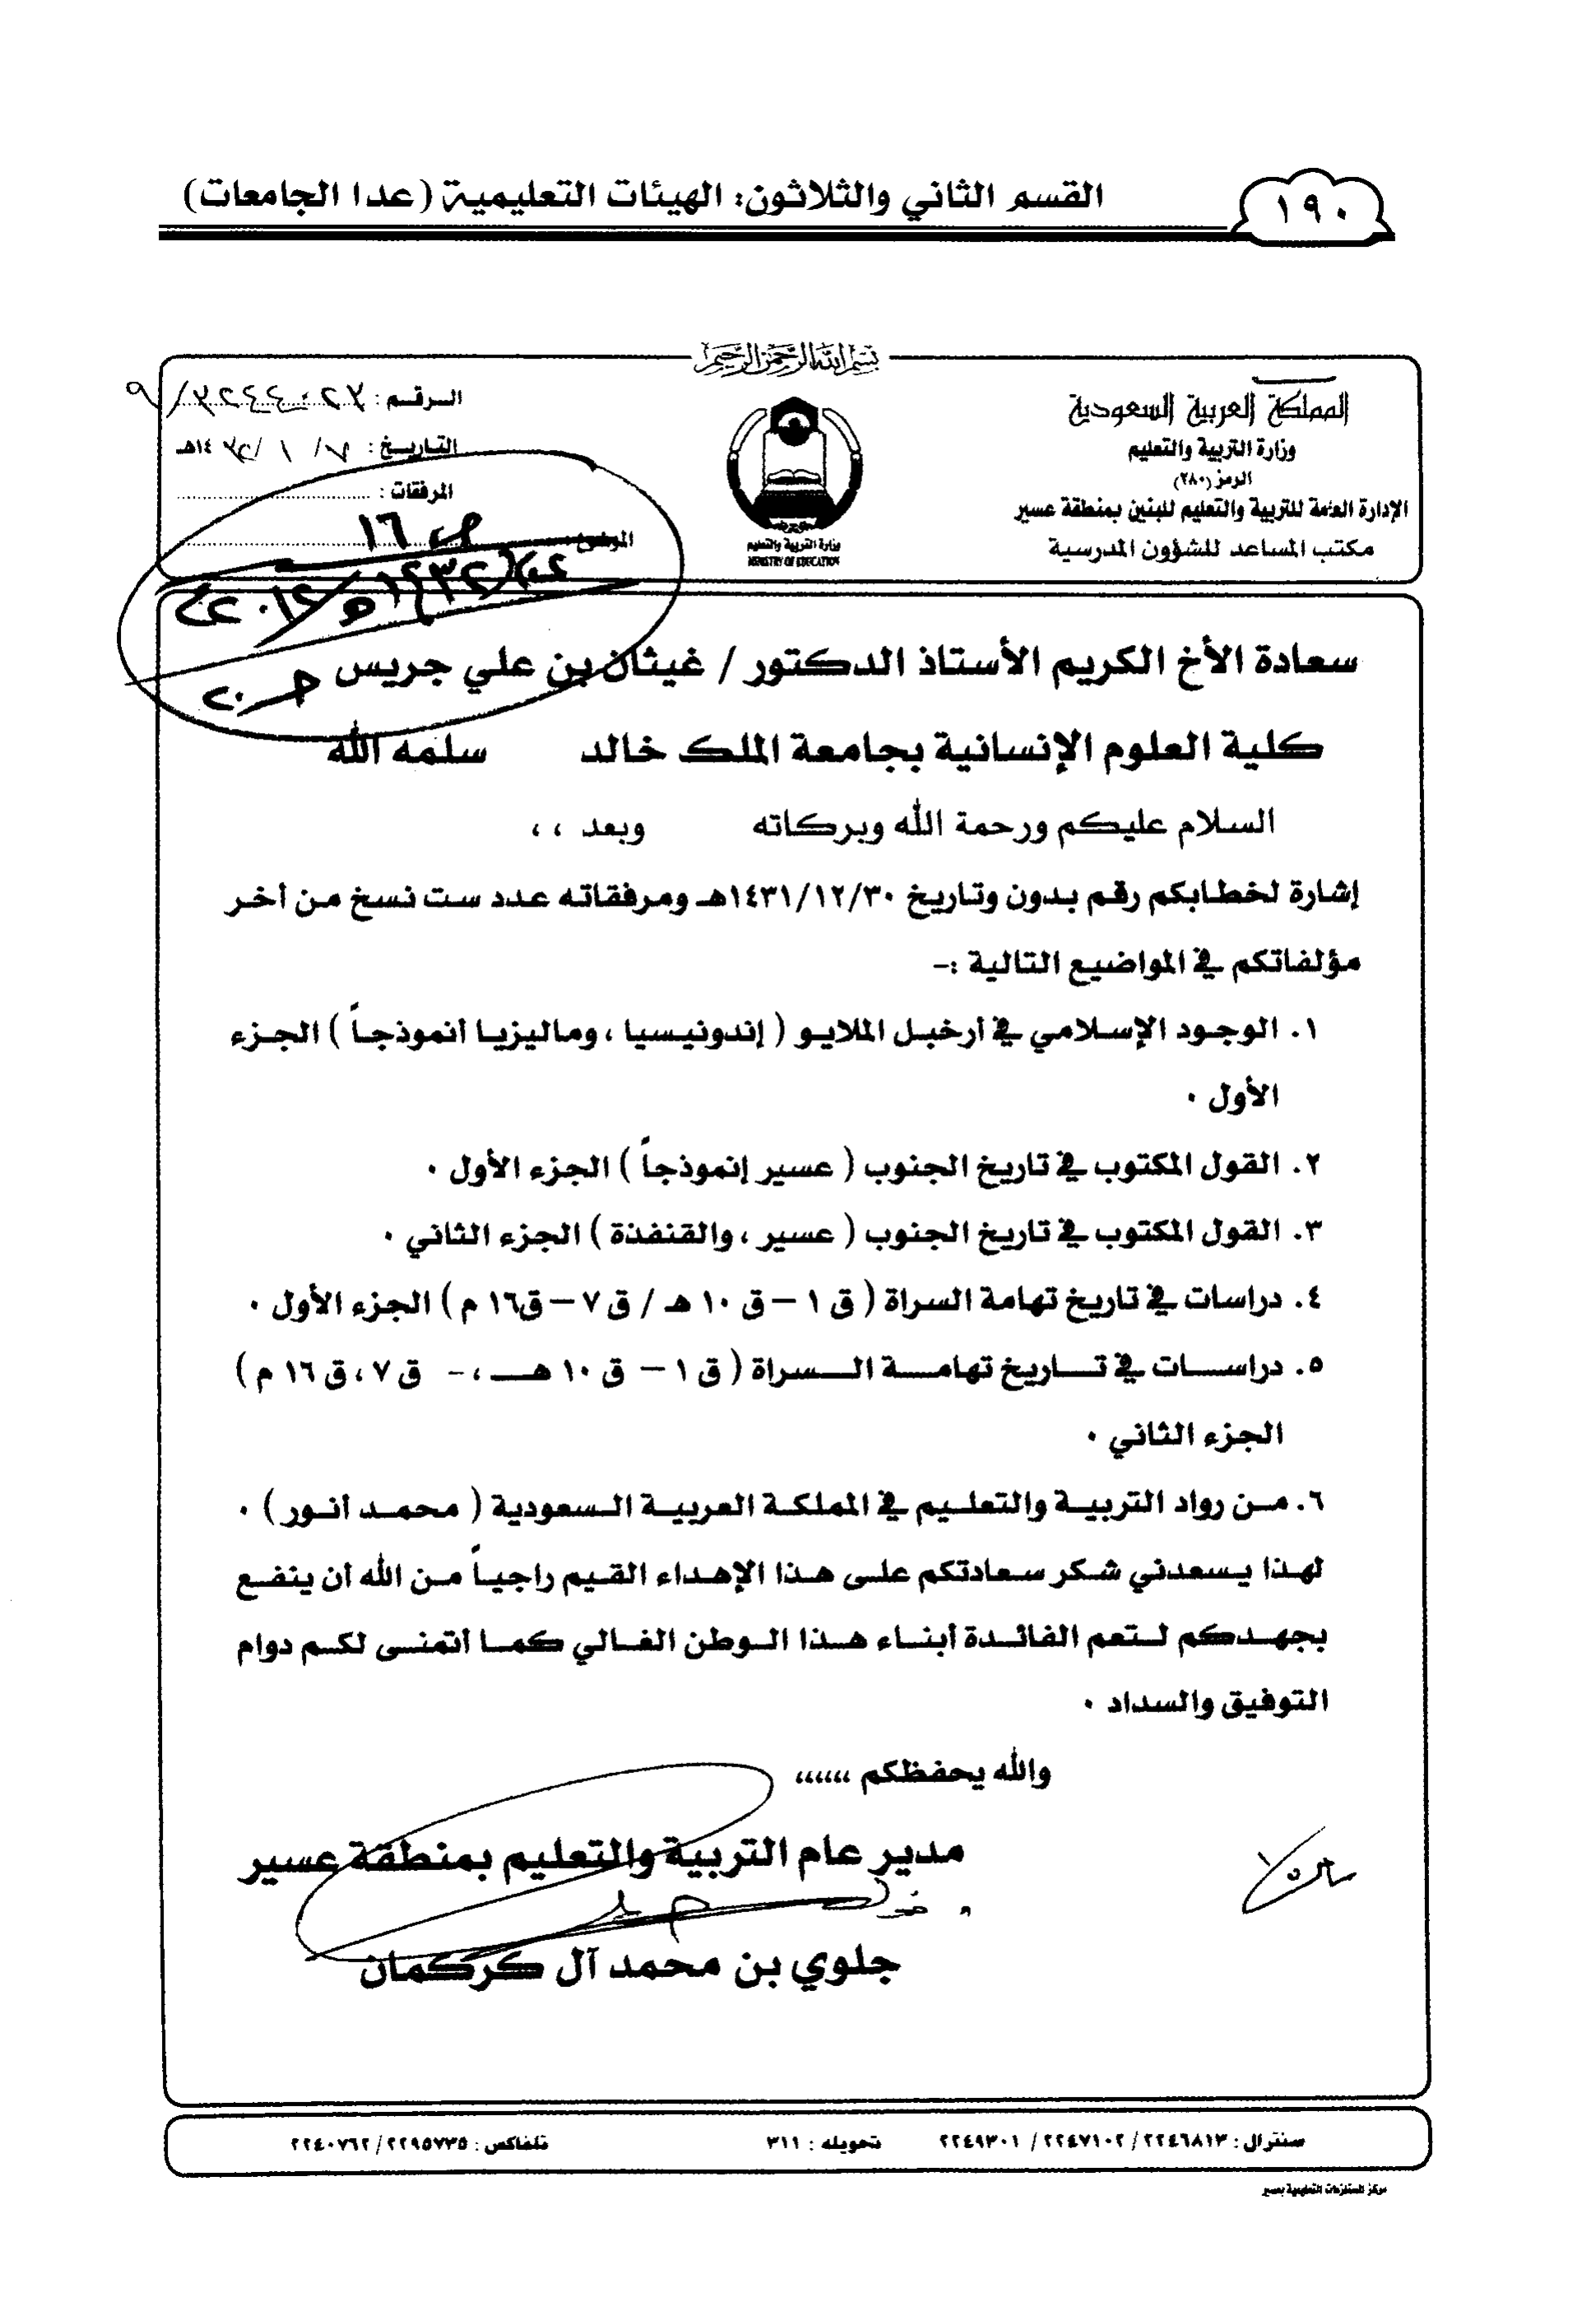 ١٩٠
القسم الثاني والثلاثون: الهيئات التعليمية (عدا الجامعات)
بسم الله الرحمن الرحيم
المملكة العربية السعودية
وزارة التربية والتعليم
الرمز (٢٨٠)
الإدارة العامة للتربية والتعليم للبنين بمنطقة عسير
مكتب المساعد للشؤون المدرسية
وزارة التربية والتعليم
MINISTRY OF EDUCATION
الرقم :
التاريخ : ١٤هـ
المرفقات :
الموضوع :
ص ١٦
سعادة الأخ الكريم الأستاذ الدكتور / غيثان بن علي جريس
كلية العلوم الإنسانية بجامعة الملك خالد سلمه الله
السلام عليكم ورحمة الله وبركاته وبعد ،،
إشارة لخطابكم رقم بدون وتاريخ ١٤٣١/١٢/٣٠هـ ومرفقاته عدد ست نسخ من أخر
مؤلفاتكم في المواضيع التالية :-
١. الوجود الإسلامي في أرخبل الملايو ( إندونيسيا ، وماليزيا أنموذجاً ) الجزء
الأول ٠
٢. القول المكتوب في تاريخ الجنوب ( عسير إنموذجاً ) الجزء الأول ٠
٣. القول المكتوب في تاريخ الجنوب ( عسير ، والقنفذة ) الجزء الثاني ٠
٤. دراسات في تاريخ تهامة السراة ( ق ١ – ق ١٠ هـ / ق ٧ – ق١٦ م ) الجزء الأول ٠
٥. دراسات في تاريخ تهامة السراة ( ق ١ – ق ١٠ هـ ،- ق ٧ ، ق ١٦ م )
الجزء الثاني ٠
٦. من رواد التربية والتعليم في المملكة العربية السعودية ( محمد أنور ) ٠
لهذا يسعدني شكر سعادتكم على هذا الإهداء القيم راجياً من الله أن ينفع
بجهدكم لتعم الفائدة أبناء هذا الوطن الغالي كما أتمنى لكم دوام
التوفيق والسداد ٠
والله يحفظكم ،،،،،،
مدير عام التربية والتعليم بمنطقة عسير
جلوي بن محمد آل كركمان
سنترال : ٢٢٤٦٨١٣ / ٢٢٤٧١٠٢ / ٢٢٤٩٣٠١ تحويله : ٣١١ تلفاكس : ٢٢٩٥٧٣٥ / ٢٢٤٠٧٦٢
مركز المستلزمات التعليمية بعسير